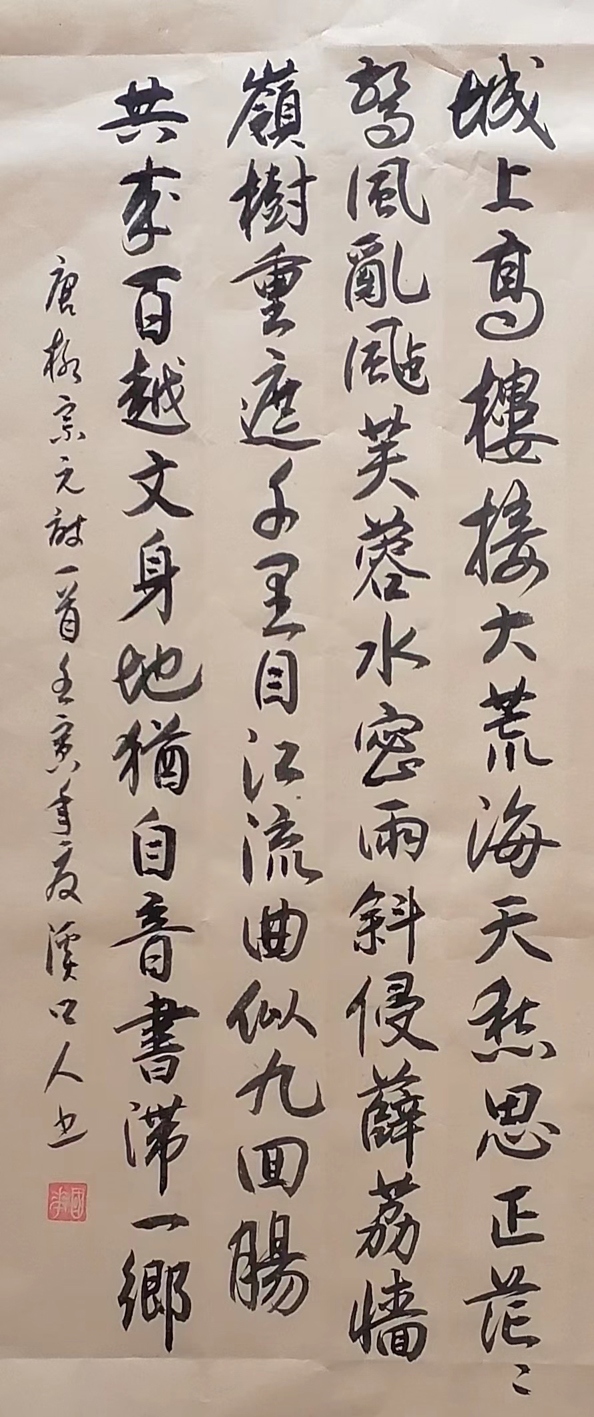 城上高樓接大荒海天愁思正茫〻
驚風亂颭芙蓉水密雨斜侵薜荔牆
嶺樹重遮千里目江流曲似九回腸
共來百越文身地猶自音書滯一鄉
唐柳宗元詩一首壬寅年夏溪口人书